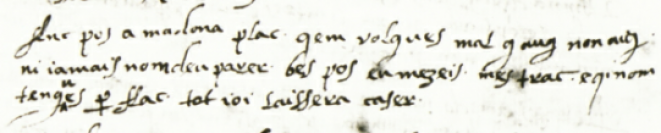 Anc pos a madona plac. qem volgues mal q aug non aus.
ni iamais nomdeu parer. bes pos eumezeis mes trac. eqi nom
tengues p flac tot ioi laissera caser.